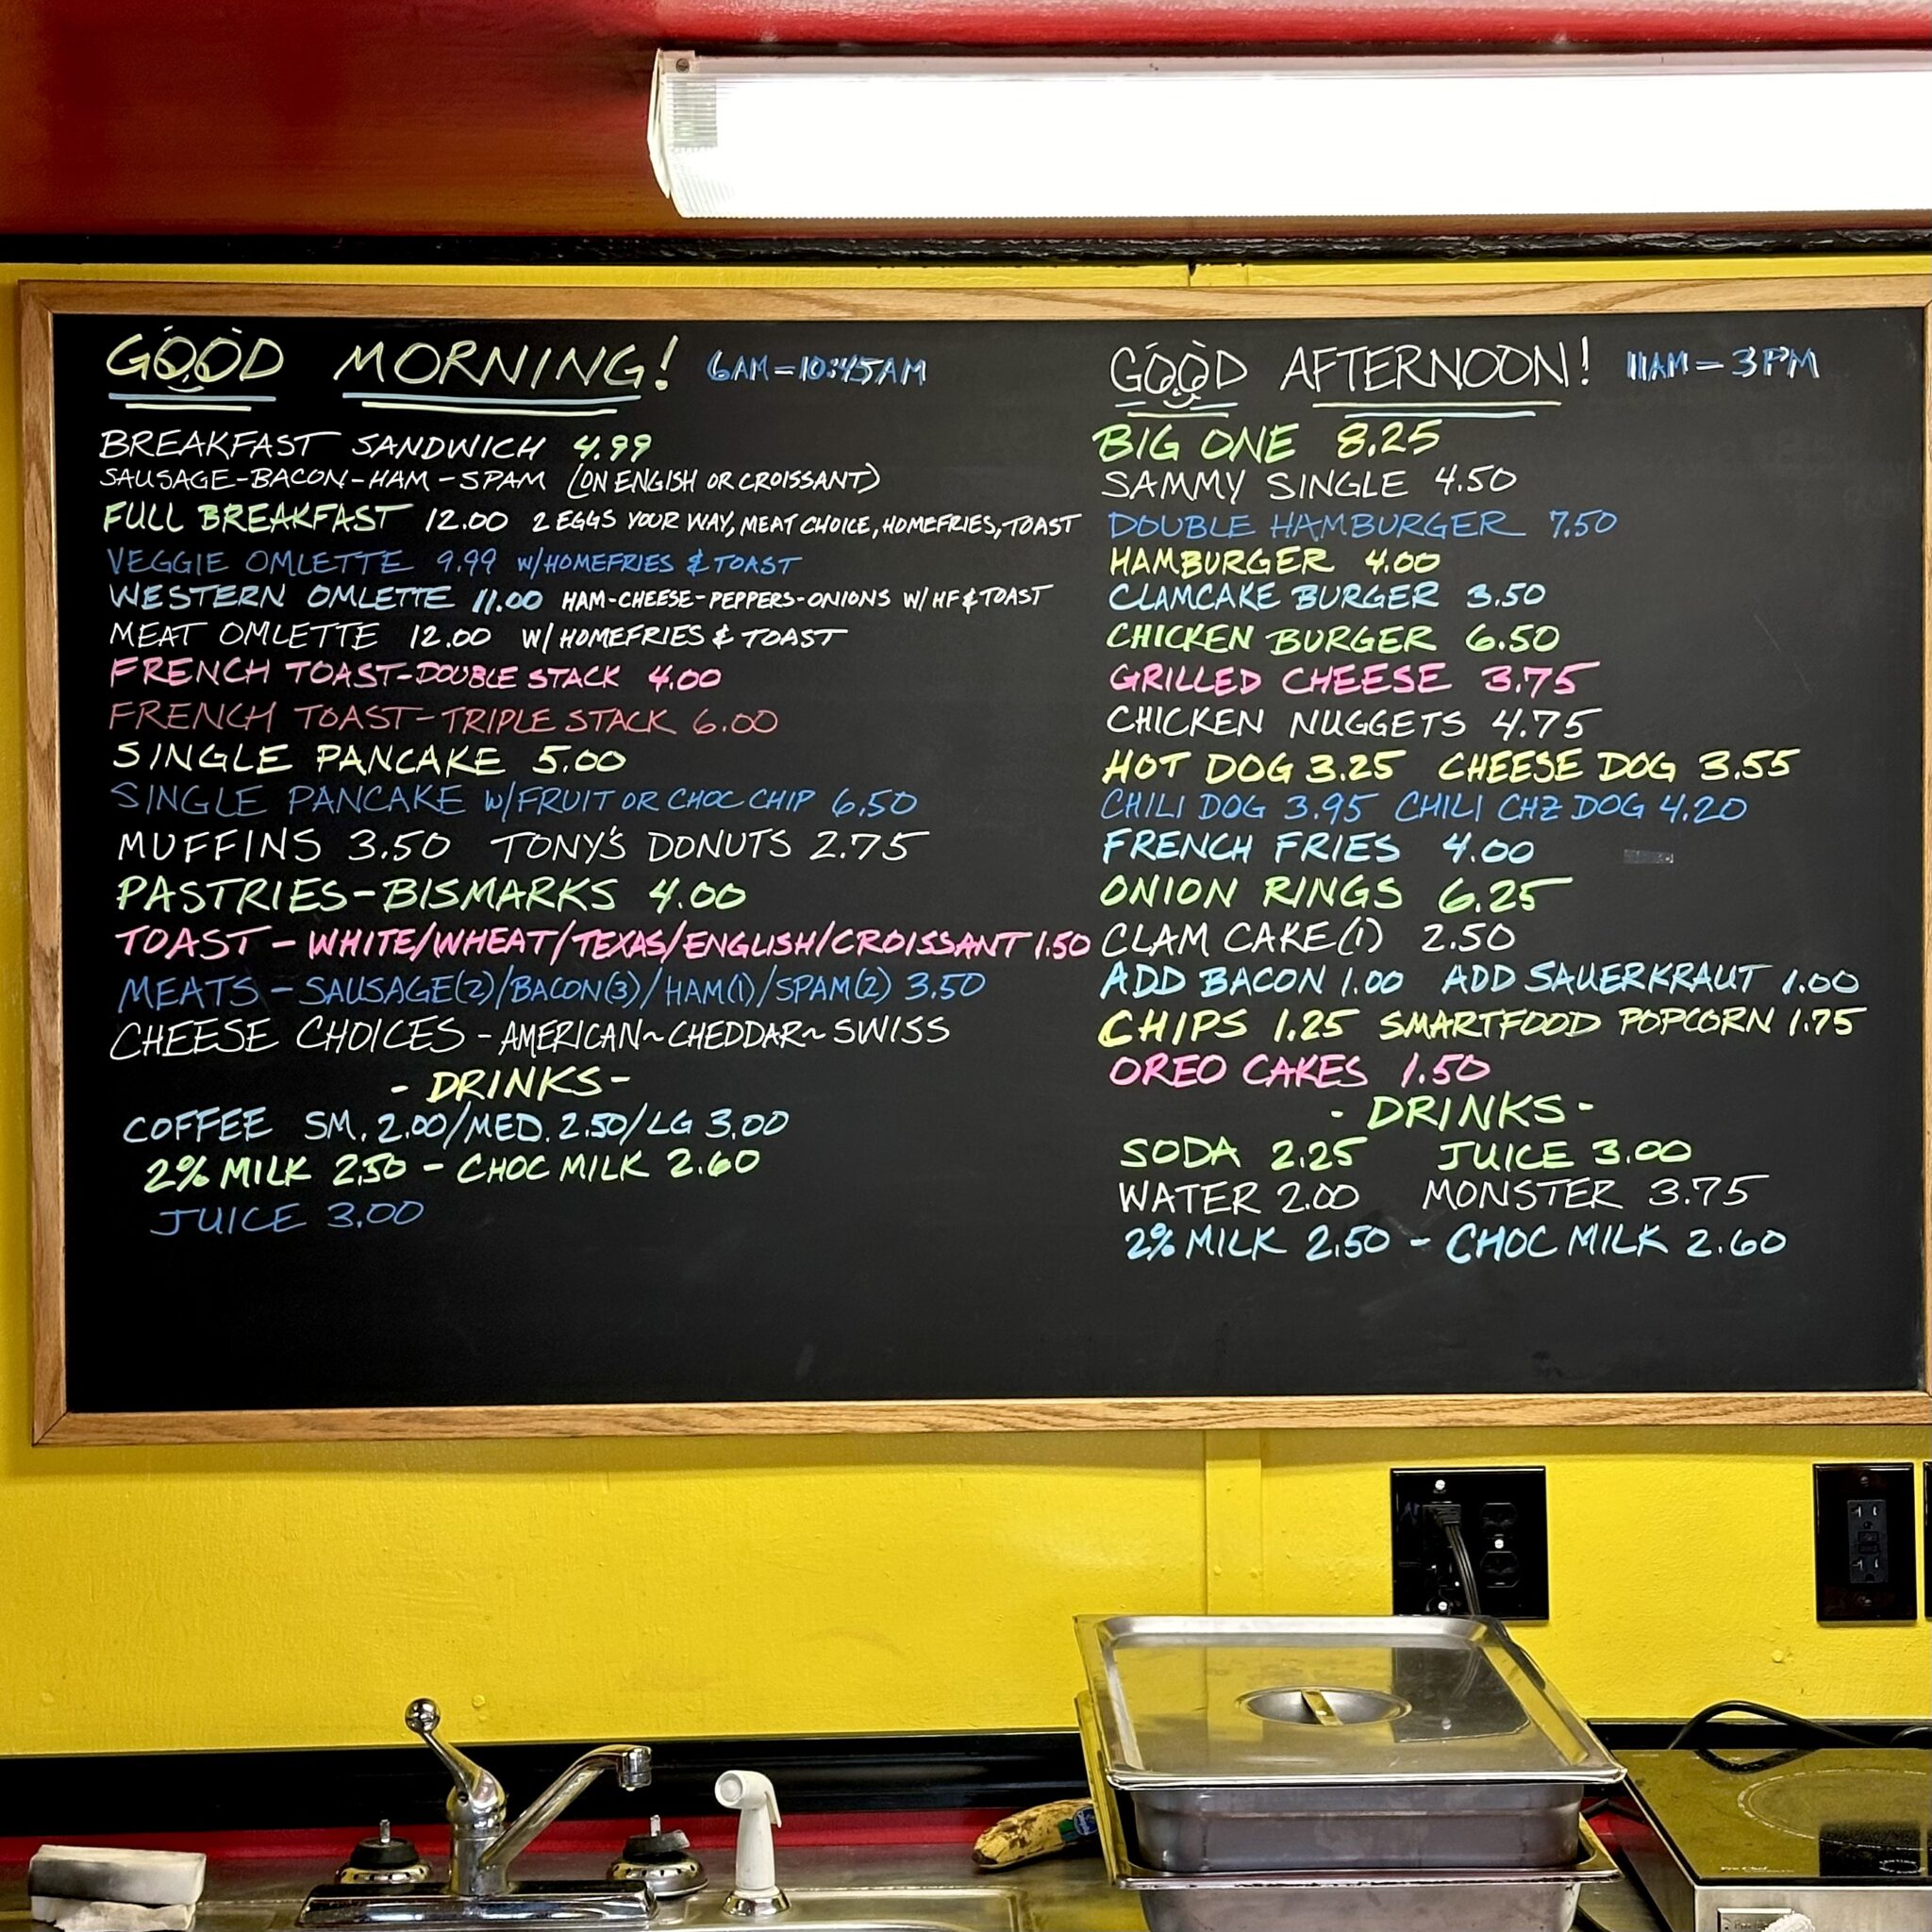 GOOD MORNING! 6AM-10:45AM
BREAKFAST SANDWICH 4.99
SAUSAGE-BACON-HAM-SPAM (ON ENGISH OR CROISSANT)
FULL BREAKFAST 12.00 2 EGGS YOUR WAY, MEAT CHOICE, HOMEFRIES, TOAST
VEGGIE OMLETTE 9.99 W/HOMEFRIES & TOAST
WESTERN OMLETTE 11.00 HAM-CHEESE-PEPPERS-ONIONS W/ HF & TOAST
MEAT OMLETTE 12.00 W/HOMEFRIES & TOAST
FRENCH TOAST-DOUBLE STACK 4.00
FRENCH TOAST-TRIPLE STACK 6.00
SINGLE PANCAKE 5.00
SINGLE PANCAKE W/FRUIT OR CHOC CHIP 6.50
MUFFINS 3.50 TONY'S DONUTS 2.75
PASTRIES-BISMARKS 4.00
TOAST - WHITE/WHEAT/TEXAS/ENGLISH/CROISSANT 1.50
MEATS - SAUSAGE(2)/BACON(3)/HAM(1)/SPAM(2) 3.50
CHEESE CHOICES - AMERICAN~CHEDDAR~SWISS
- DRINKS -
COFFEE SM. 2.00/MED. 2.50/LG 3.00
2% MILK 2.50 - CHOC MILK 2.60
JUICE 3.00
GOOD AFTERNOON! 11AM-3PM
BIG ONE 8.25
SAMMY SINGLE 4.50
DOUBLE HAMBURGER 7.50
HAMBURGER 4.00
CLAMCAKE BURGER 3.50
CHICKEN BURGER 6.50
GRILLED CHEESE 3.75
CHICKEN NUGGETS 4.75
HOT DOG 3.25 CHEESE DOG 3.55
CHILI DOG 3.95 CHILI CHZ DOG 4.20
FRENCH FRIES 4.00
ONION RINGS 6.25
CLAM CAKE (1) 2.50
ADD BACON 1.00 ADD SAUERKRAUT 1.00
CHIPS 1.25 SMARTFOOD POPCORN 1.75
OREO CAKES 1.50
- DRINKS -
SODA 2.25 JUICE 3.00
WATER 2.00 MONSTER 3.75
2% MILK 2.50 - CHOC MILK 2.60